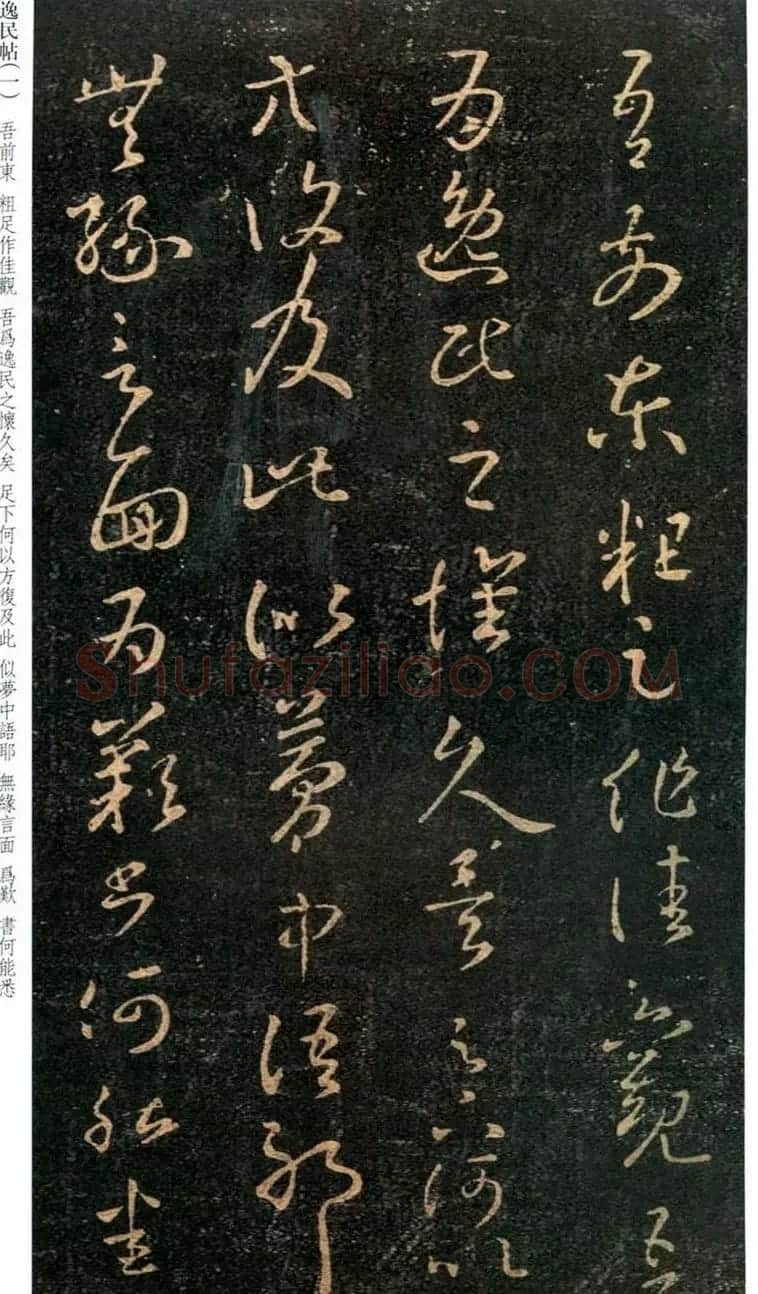 吾前東粗足作佳觀吾
爲逸民之懷久矣足下何以
方復及此似夢中語耶
無緣言面爲歎書何能悉
逸民帖(一) 吾前東 粗足作佳觀 吾爲逸民之懷久矣 足下何以方復及此 似夢中語耶 無緣言面 爲歎 書何能悉
Shufaziliao.COM